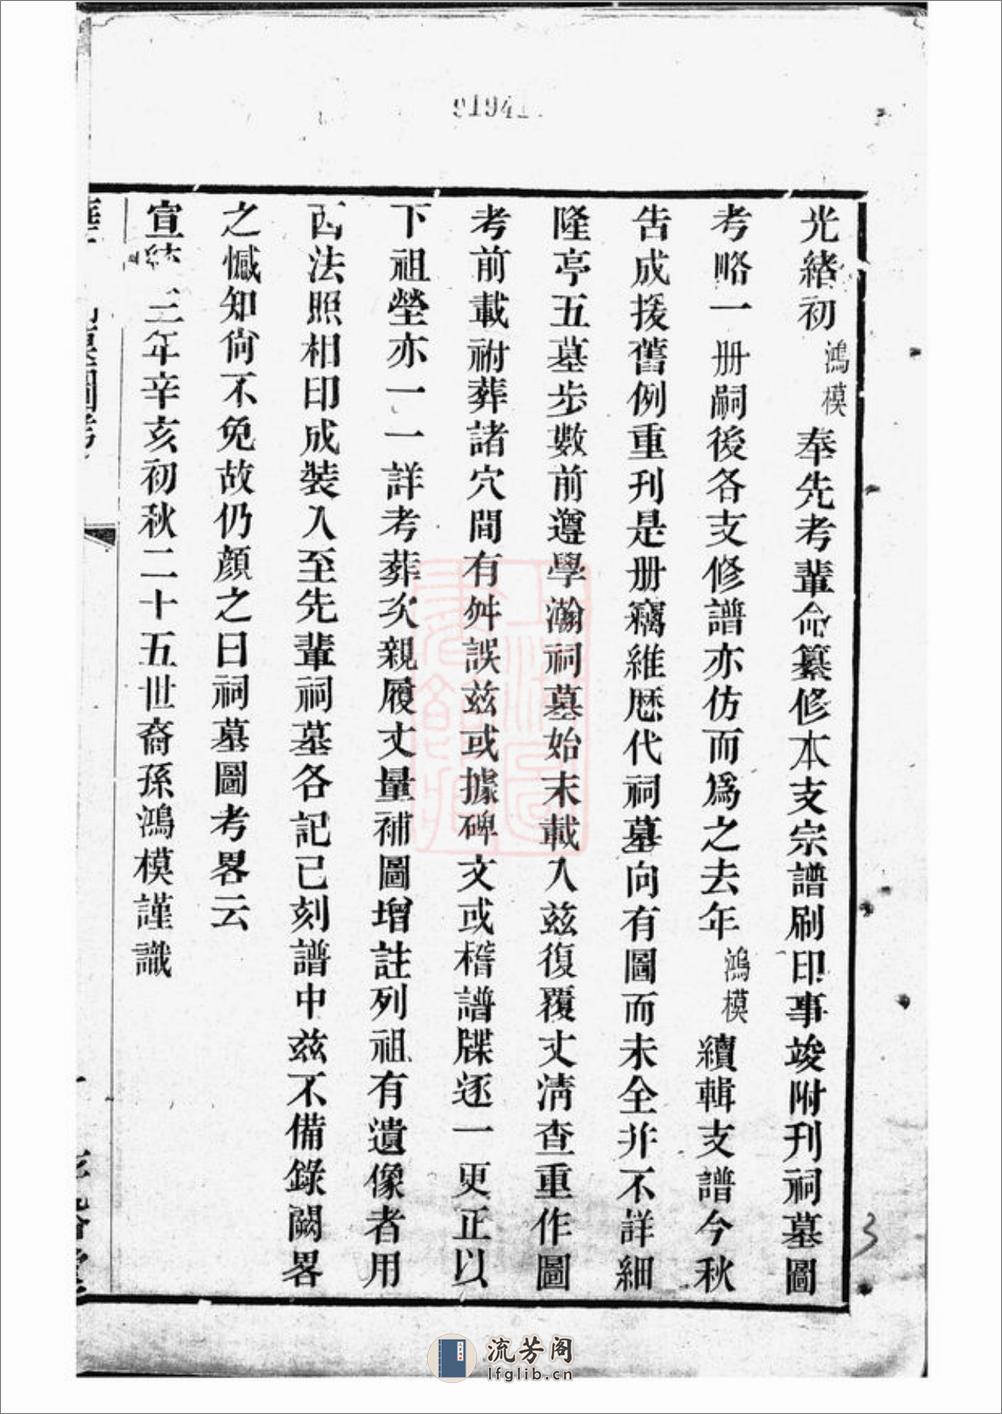 91941
光緒初鴻模奉先考輩命纂修本支宗譜刷印事竣附刊祠墓圖
考略一册嗣後各支修譜亦仿而爲之去年鴻模續輯支譜今秋
告成援舊例重刊是册竊維歷代祠墓向有圖而未全幷不詳細
隆亭五墓步數前遵學瀚祠墓始末載入茲復覆丈清查重作圖
考前載祔葬諸穴間有舛誤茲或據碑文或稽譜牒逐一更正以
下祖塋亦一一詳考葬次親履丈量補圖增註列祖有遺像者用
西法照相印成裝入至先輩祠墓各記已刻譜中茲不備錄闕畧
之憾知尙不免故仍顏之曰祠墓圖考畧云
宣統三年辛亥初秋二十五世裔孫鴻模謹識
3
流芳阁
lfglib.cn